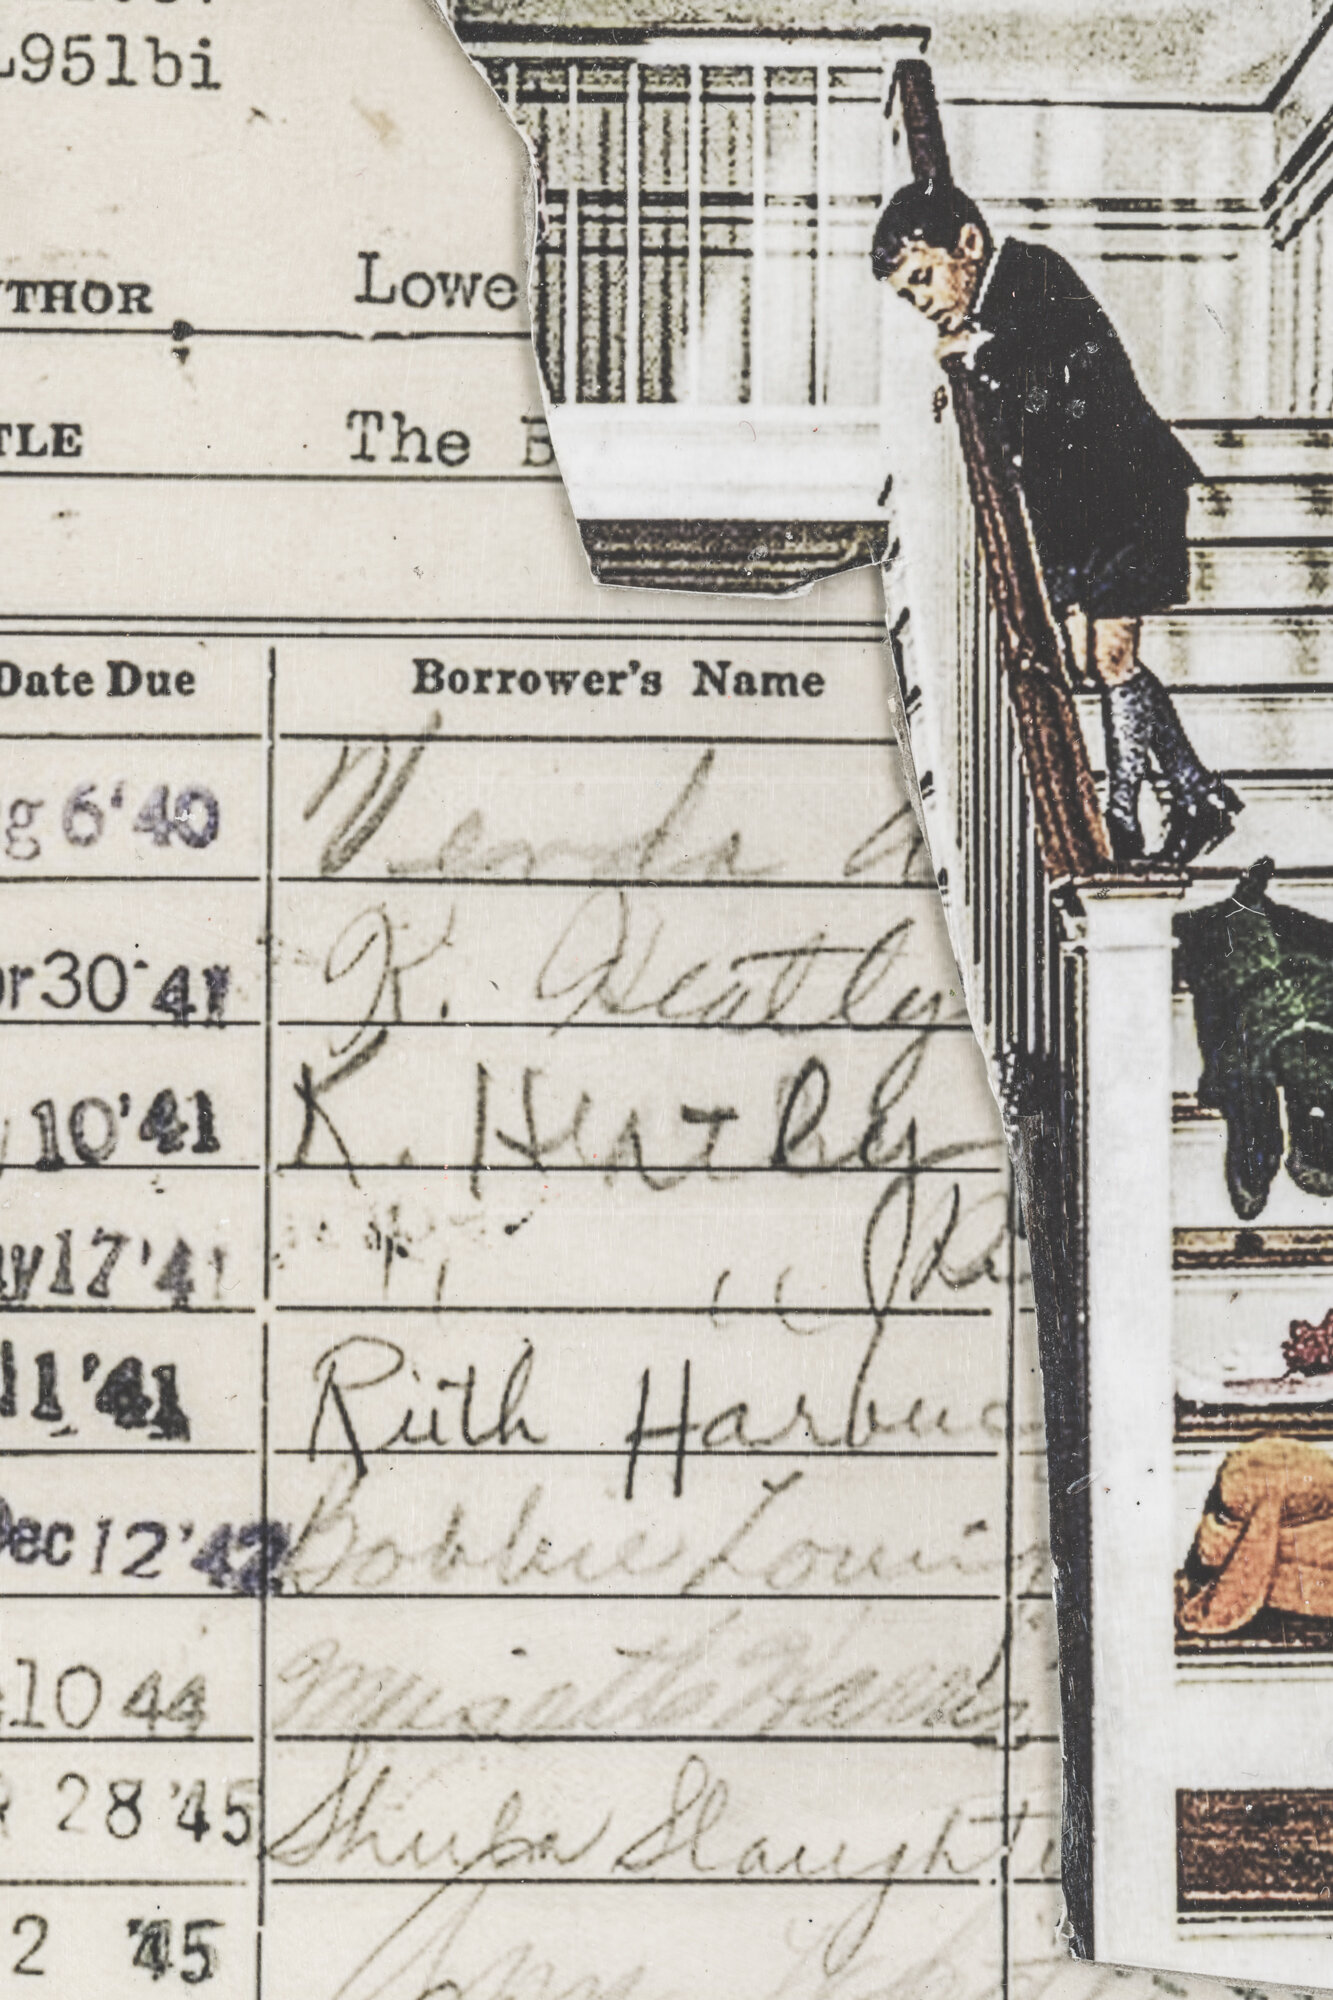 L951bi
THOR Lowe
TLE The B
Date Due Borrower's Name
g 6'40 Venda
r 30'41 K. Heatly
10'41 K. Heatly
y 17'41 " "
11'41 Ruth Harbuc
Dec 12'42 Bobbie Louis
10 44
28'45 Slaughte
2 '45